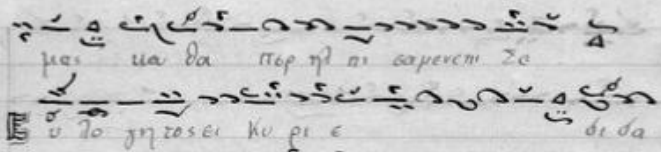 μας κα θα περ ηλ πι σαμενεπι Σε
Ευ λο γητοσει Κυ ρι ε δι δα